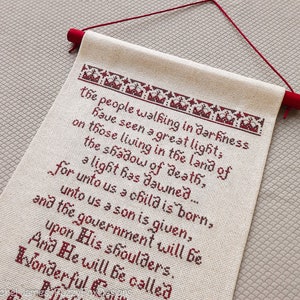 the people walking in darkness
have seen a great light;
on those living in the land of
the shadow of death,
a light has dawned...
for unto us a child is born,
unto us a son is given,
and the government will be
upon His shoulders.
And He will be called
Wonderful